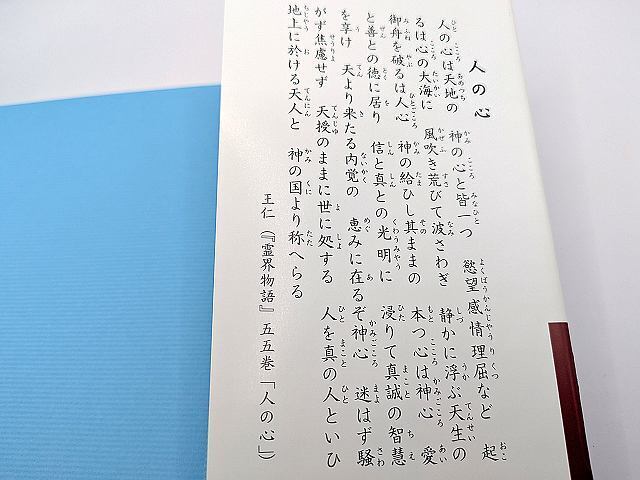 人の心
人の心は天地の　神の心と皆一つ　慾望感情理屈など　起
るは心の大海に　風吹き荒びて波さわぎ　静かに浮ぶ天生の
御舟を破るは人心　神の給ひし其ままの　本つ心は神心　愛
と善との徳に居り　信と真との光明に　浸りて真誠の智慧
を享け　天より来たる内覚の　恵みに在るぞ神心　迷はず騒
がず焦慮せず　天授のままに世に処する　人を真の人といひ
地上に於ける天人と　神の国より称へらる
王仁（『霊界物語』五五巻「人の心」）